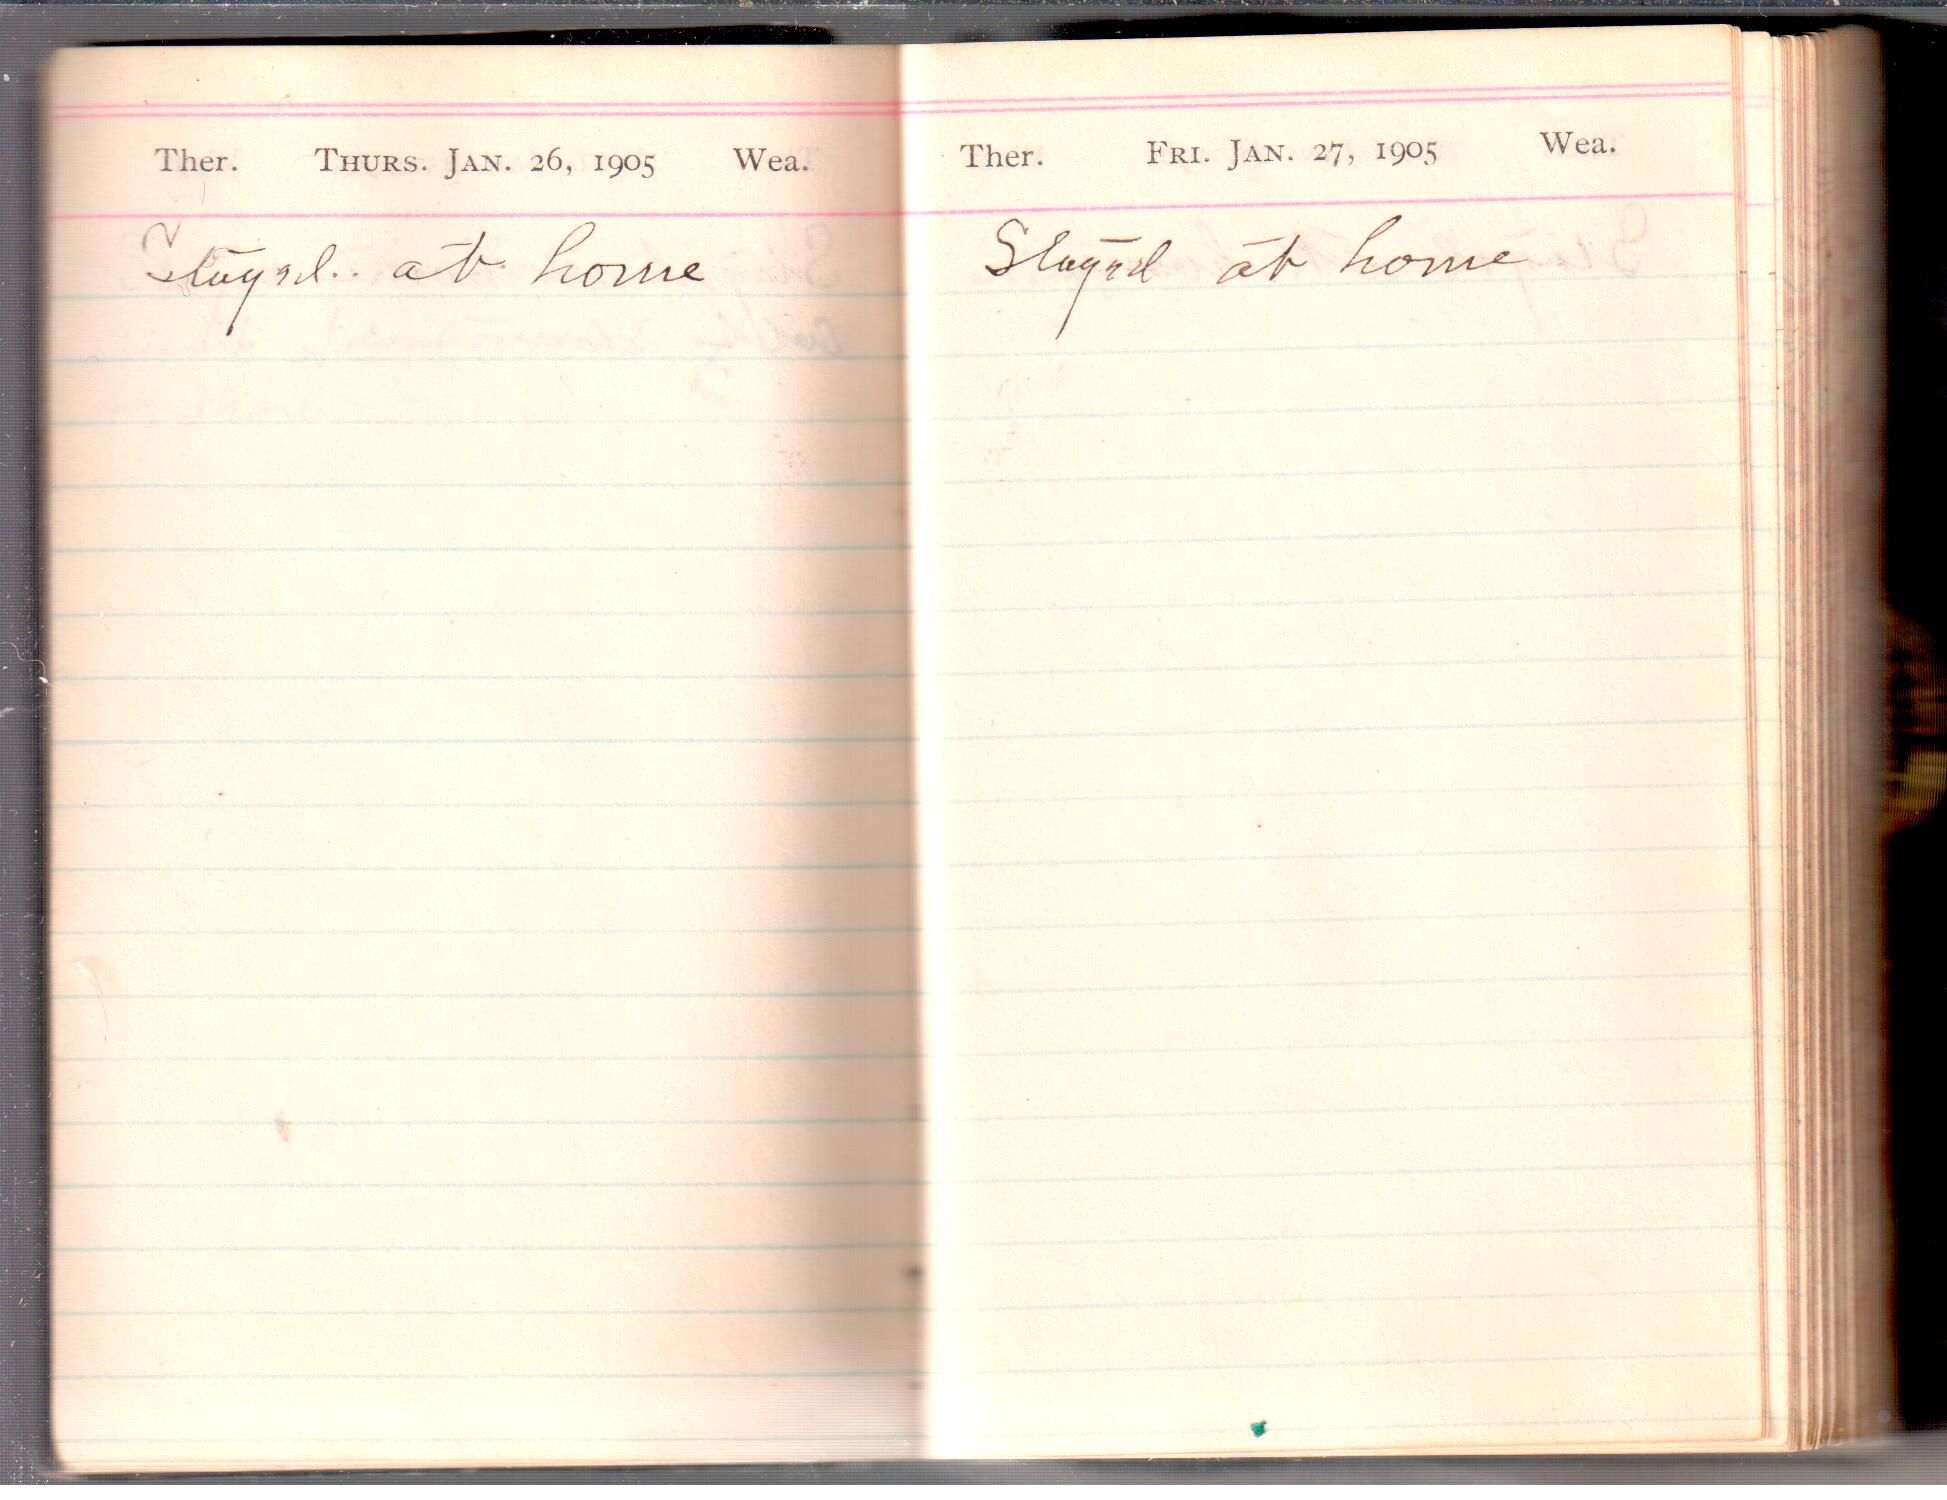 Ther. Thurs. Jan. 26, 1905 Wea.
Stayed.. at home
Ther. Fri. Jan. 27, 1905 Wea.
Stayed at home